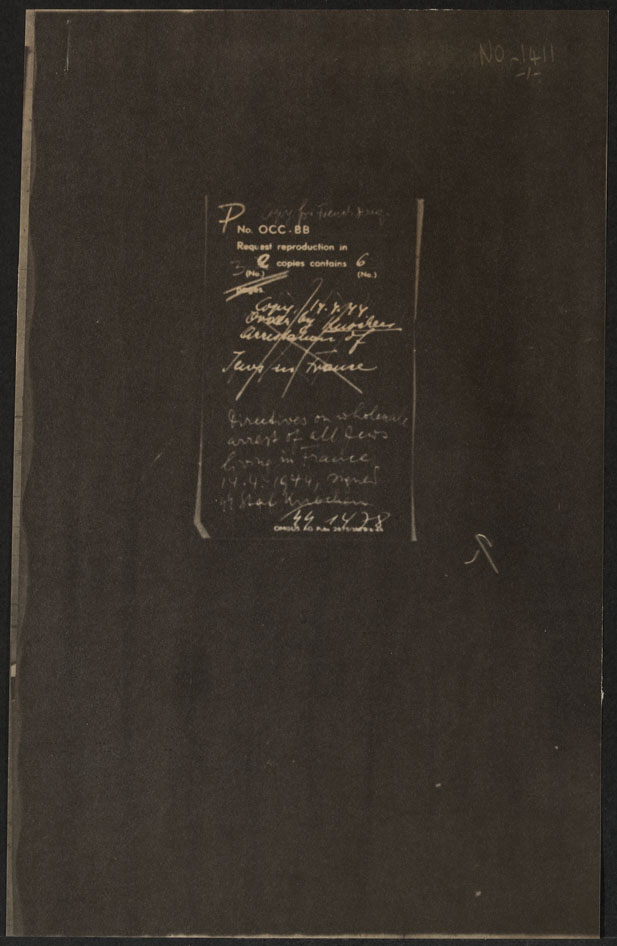 NO-1411
-1-
P Copy for French
No. OCC-BB
Request reproduction in
3 copies contains 6
(No.) (No.)
pages.
Copy 14.4.44
Order by
Arrestation of
Jews in France
Directives on wholesale
arrest of all Jews
living in France,
14.4.1944, signed
44 1478
OMGUS AG